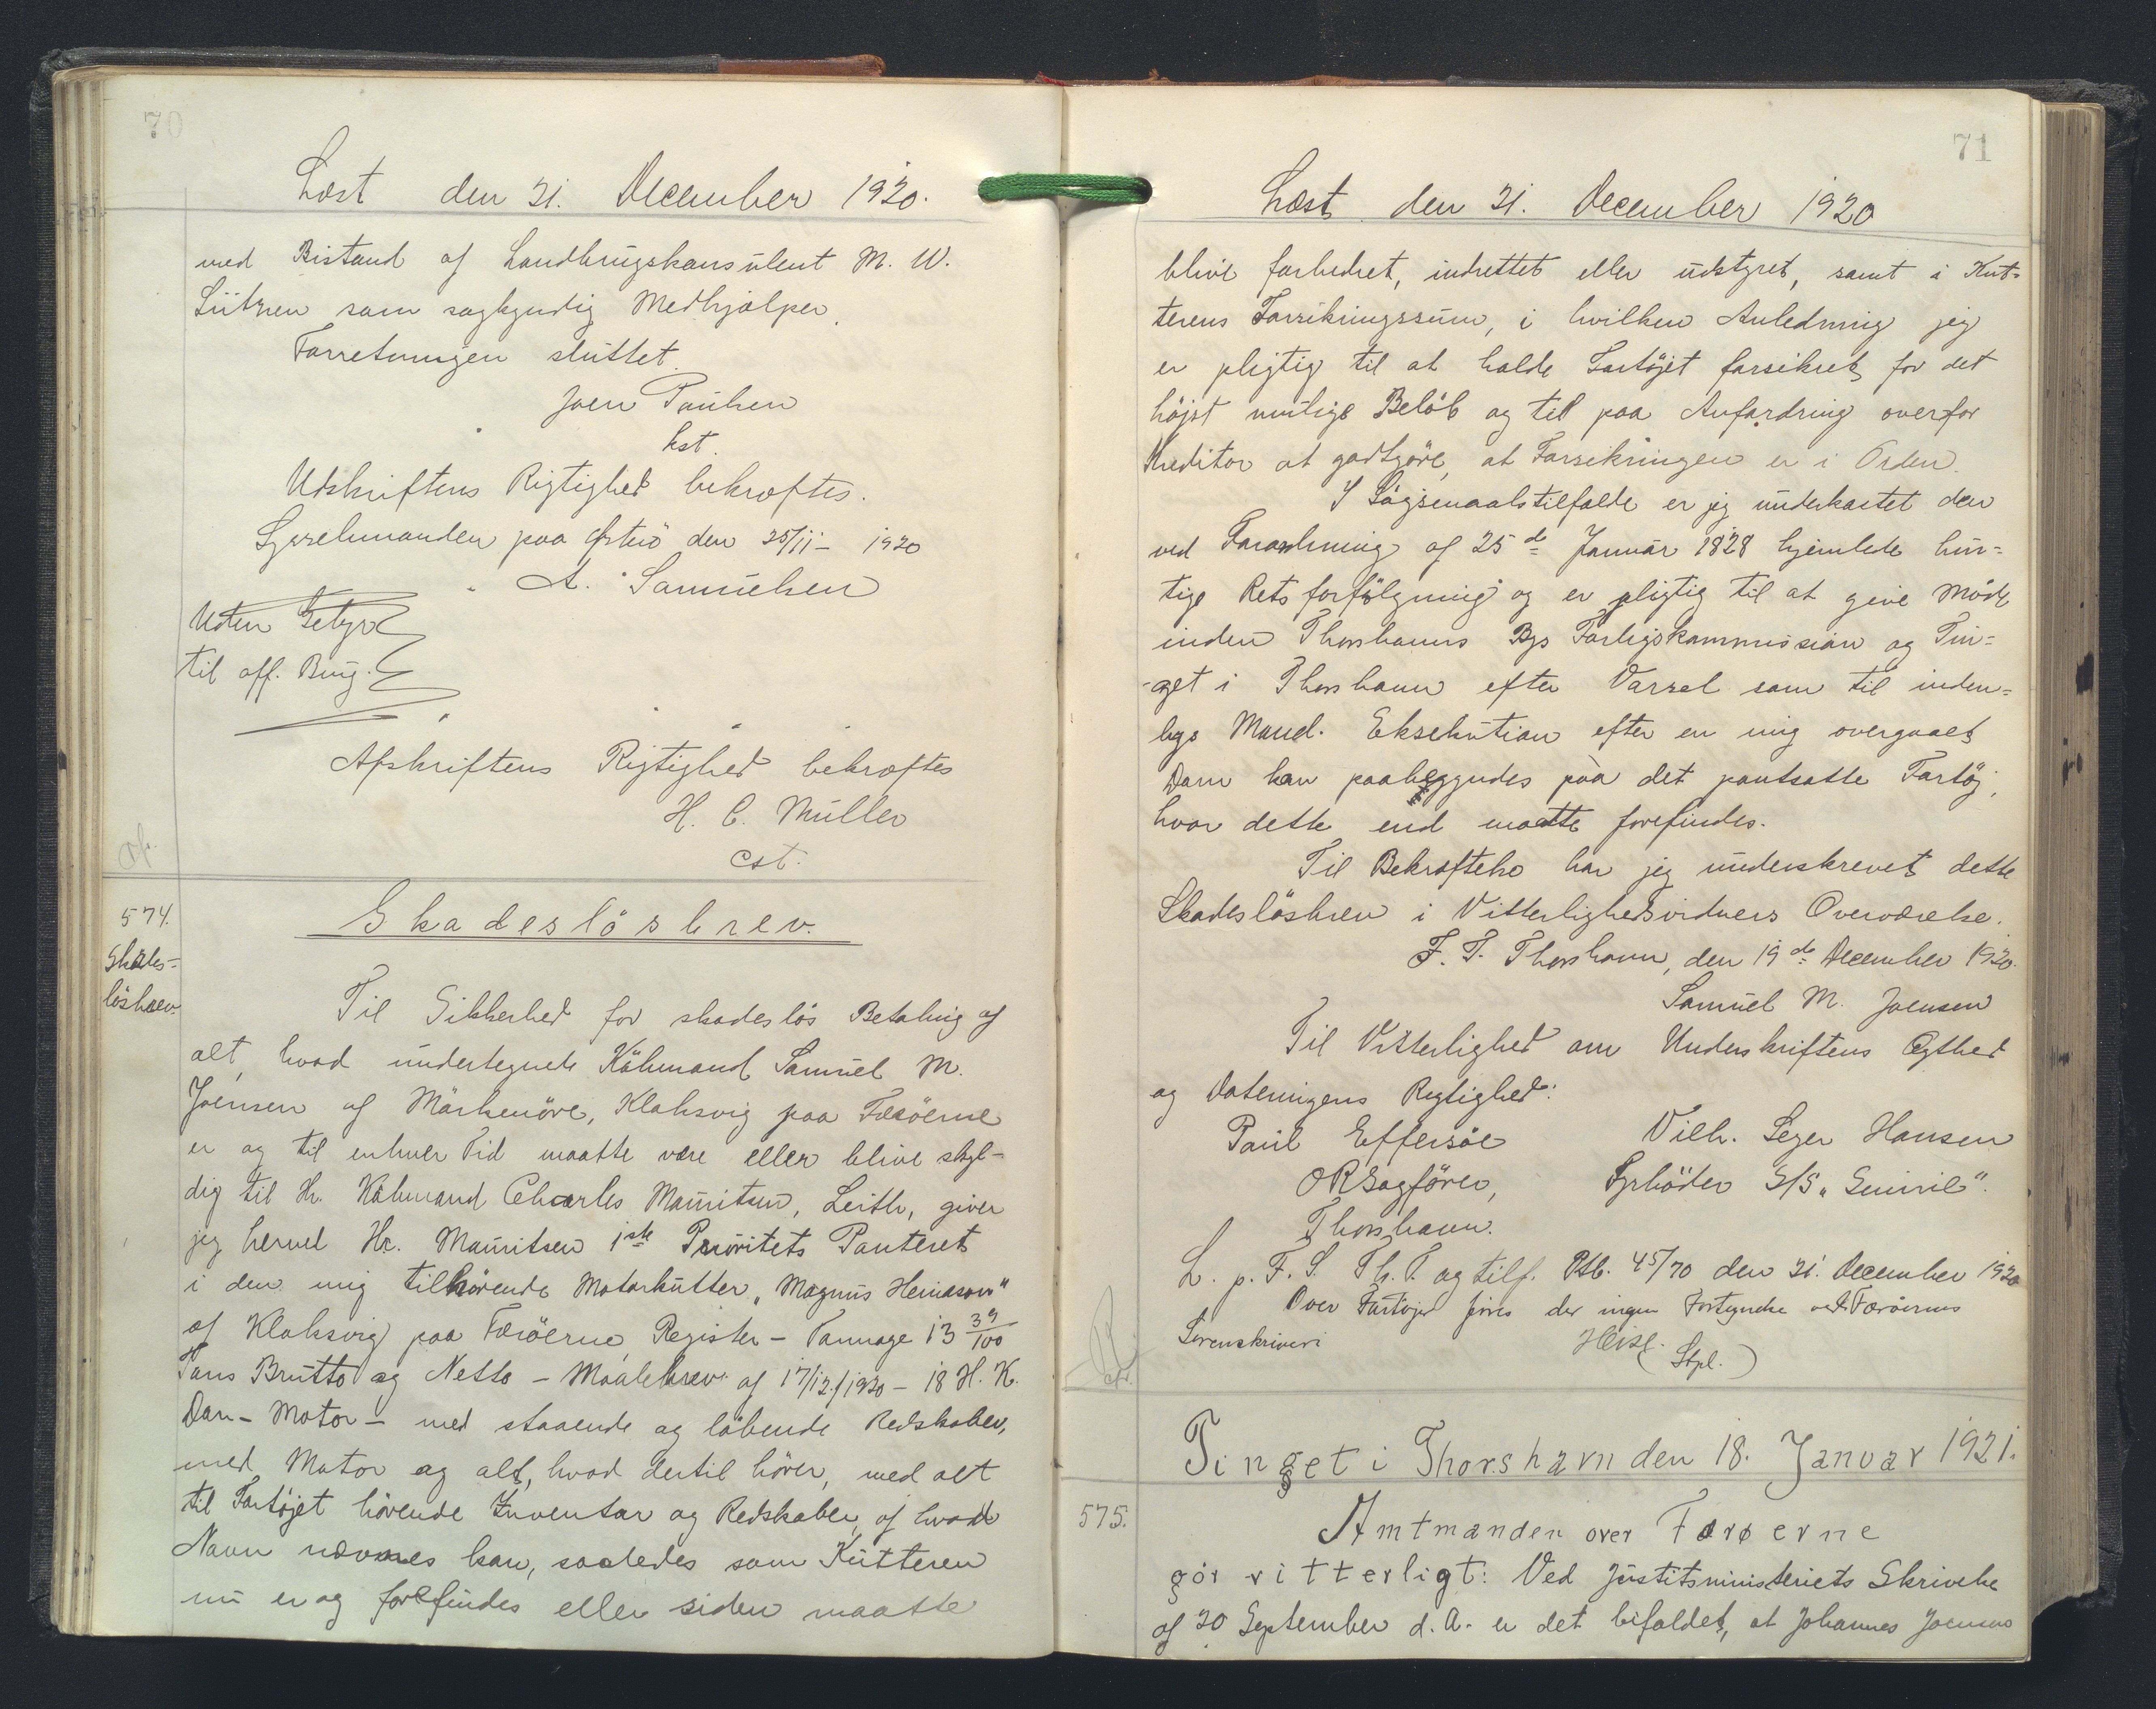 70
Læst den 21. December 1920.
med Bistand af Landbrugskonsulent M. W.
Lützen som sagkyndig Medhjælper.
Forretningen sluttet.
Joen Poulsen
kst.
Udskriftens Rigtighed bekræftes.
Sysselmanden paa Østerö den 25/11 - 1920
A. Samuelsen
Uden Gebyr
til off. Brug.
Afskriftens Rigtighed bekræftes
H. C. Müller
cst.
574.
Skades=
løsbrev.
Skadesløsbrev.
Til Sikkerhed for skadesløs Betaling af
alt, hvad undertegnede Købmand Samuel M.
Joensen af Mærkenöre, Klaksvig paa Færöerne
er og til enhver Tid maatte være eller blive skyl-
dig til Hr. Købmand Charles Mauritsen, Leith, giver
jeg herved Hr. Mauritsen 1ste Prioritets Panteret
i den mig tilhörende Motorkutter „Magnus Heinason"
af Klaksvig paa Færöerne, Register - Tonnage 13 39/100
Tons Brutto og Netto - Maalebrev af 17/12/1920 - 18 H. K.
Dan - Motor - med staaende og löbende Redskaber,
med Motor og alt, hvad dertil hörer, med alt
til Fartöjet hörende Inventar og Redskaber, af hvad
Navn nævnes kan, saaledes som Kutteren
nu er og forefindes eller siden maatte
71
Læst den 21. December 1920
blive forbedret, indrettet eller udstyret, samt i Kut=
terens Forsikringssum, i hvilken Anledning jeg
er pligtig til at holde Fartöjet forsikret for det
höjst mulige Belöb og til paa Anfordring overfor
Kreditor at godtgöre, at Forsikringen er i Orden.
I Søgsmaalstilfælde er jeg underkastet den
ved Forordning af 25de Januar 1828 hjemlede hur=
tige Retsforfölgning og er pligtig til at give Möde
inden Thorshavns Bys Forligskommission og Tin=
get i Thorshavn efter Varsel som til inden=
bys Mand. Eksekution efter en mig overgaaet
Dom kan paabegyndes paa det pantsatte Fartöj,
hvor dette end maatte forefindes.
Til Bekræftelse har jeg underskrevet dette
Skadeslösbrev i Vitterlighedsvidners Overværelse.
F. T. Thorshavn, den 19de December 1920.
Samuel M. Joensen
Til Vitterlighed om Underskriftens Ægthed
og Dateringens Rigtighed:
Poul Effersöe Vilh. Hansen
ORSagförer, S/S „
Thorshavn.
L. p. F. S. Th. T. og tilf. Ptb. 45/70 den 21. December 1920
Over Fartöjer föres der ingen Fortegnelse ved Færöernes
Sorenskriveri
(Stpl.)
Tinget i Thorshavn den 18. Januar 1921.
575.
Amtmanden over Færøerne
gör vitterligt: Ved Justitsministeriets Skrivelse
af 20 September d. A. er det bifaldet, at Johannes Joensens